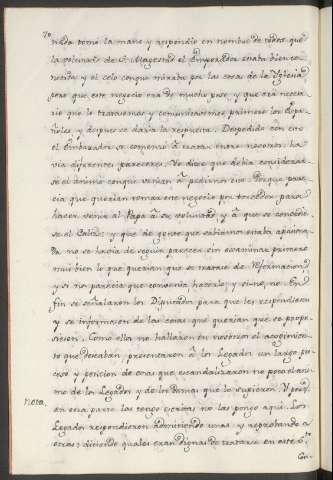 70
nado tomó la mano y respondió en nombre de todos que
la voluntad de S. Magestad el Emperador estaba bien co-
nocida y el celo conque miraba por las cosas de la Yglesia
pero que este negocio era de mucho peso y que era necesa-
rio que lo tratasemos y comunicasemos primero los Espa-
ñoles y despues se daria la respuesta. Despedido con esto
el Embaxador se comenzó á tratar entre nosotros: ha-
via diferentes pareceres. Yo dixe que debia considerar-
se el animo conque venian á pedirnos esto. Porque pare-
cia que querian tomar este negocio por torcedor para
hacer venir al Papa á su voluntad y á que se concedie-
se el Caliz: y que de gente que sabiamos estaba apasiona-
da no se havia de seguir parecer sin examinar primero
mui bien lo que querian que se tratase de Reformacion,
y si nos parecia que convenia hacerlo; y si no, no. En
fin se señalaron los Diputados para que les respondiesen
y se informasen de las cosas que querian que se propu-
siesen. Como ellos no hallaron en nosotros el acogimien-
to que deseaban, presentaron á los Legados un largo pro-
ceso y peticion de cosas que escandalizaron no poco el ani-
mo de los Legados y de los demas que lo supieron. Y porq.
Nota. en otra parte las tengo escritas no las pongo aqui. Los
Legados respondieron admitiendo unas y reprobando á
otras; diciendo quales eran dignas de tratarse en este S.to
Con-